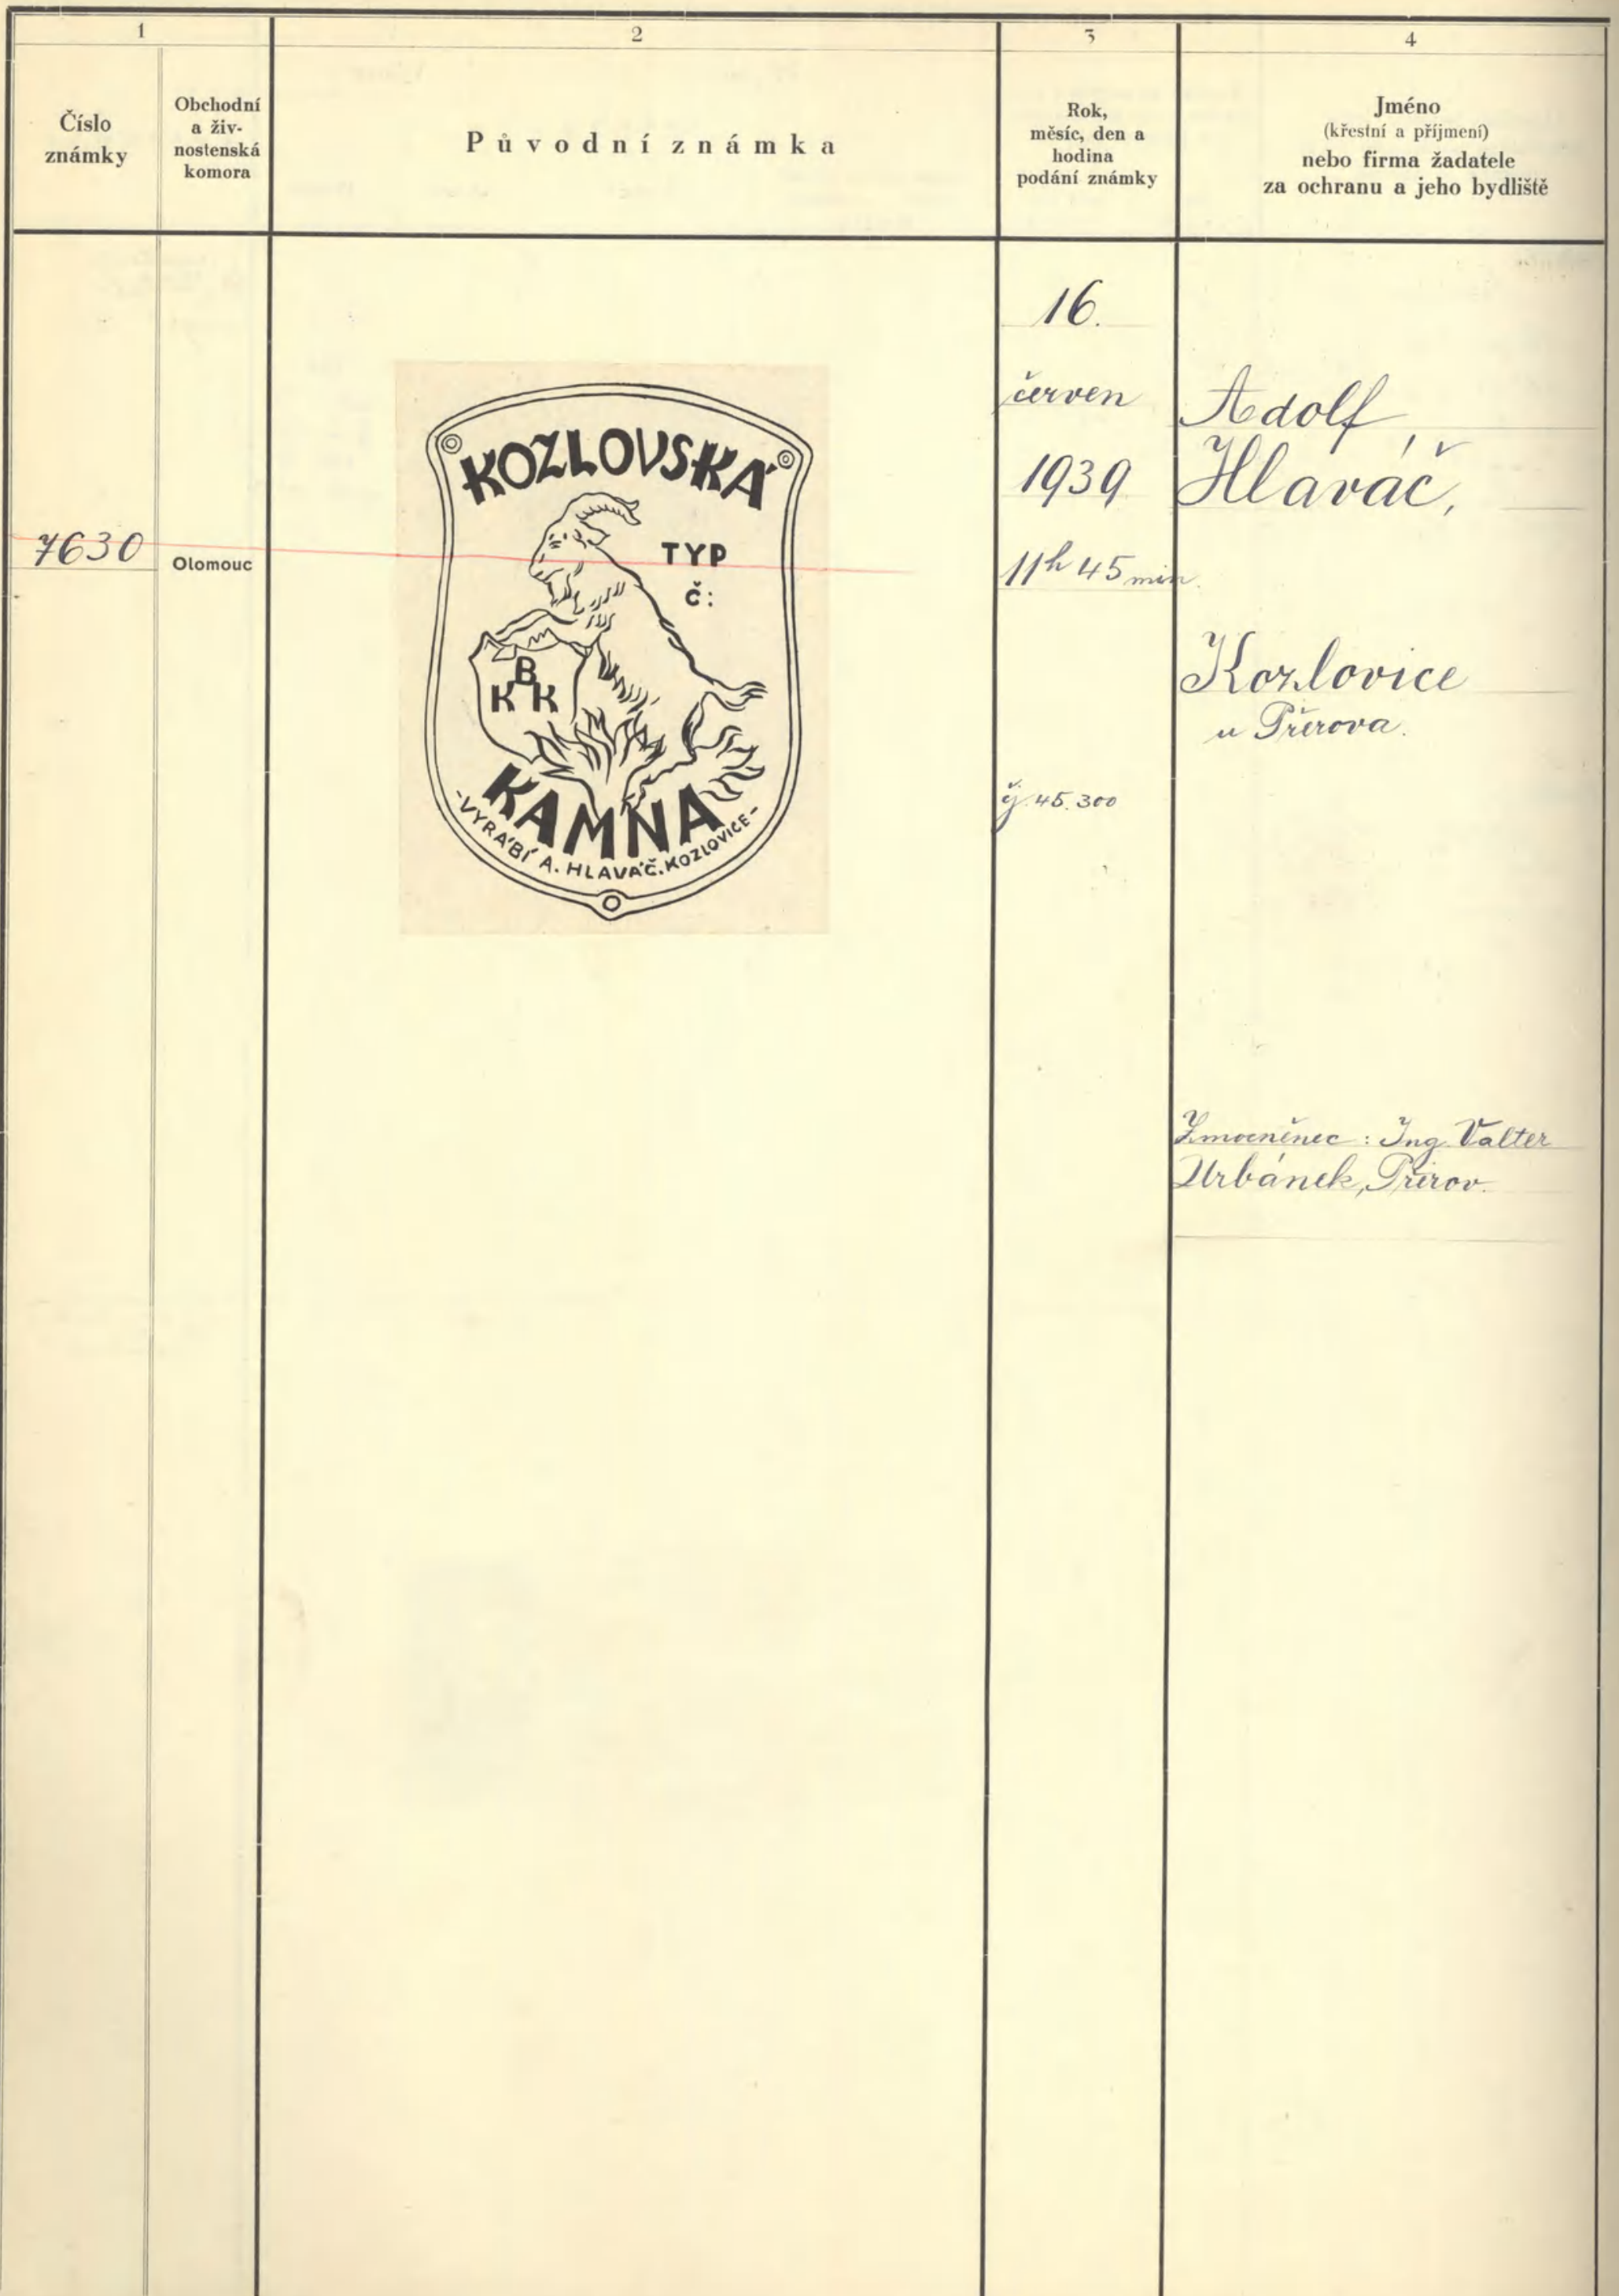 1
2
3
4
Číslo
známky
Obchodní
a živ-
nostenská
komora
Původní známka
Rok,
měsíc, den a
hodina
podání známky
Jméno
(křestní a příjmení)
nebo firma žadatele
za ochranu a jeho bydliště
7630
Olomouc
KOZLOVSKÁ
TYP
Č:
B
K K
KAMNA
-VYRÁBÍ A. HLAVÁČ. KOZLOVICE-
16.
červen
1939
11h 45 min.
čj. 45.300
Adolf
Hlaváč,
Kozlovice
u Přerova.
Zmocněnec: Ing. Valter
Urbánek, Přerov.